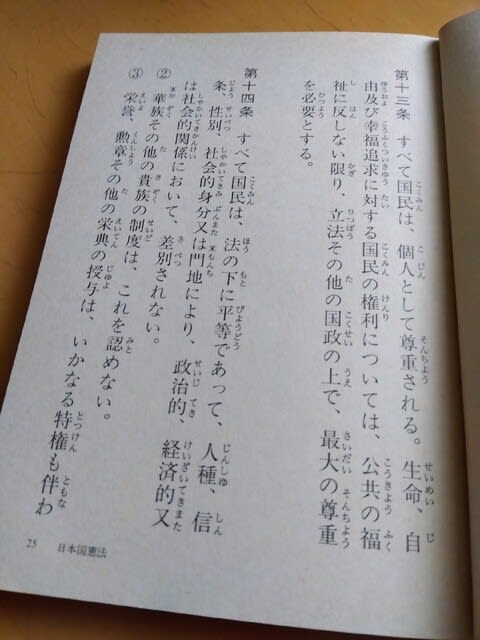 第十三条　すべて国民は、個人として尊重される。生命、自
由及び幸福追求に対する国民の権利については、公共の福
祉に反しない限り、立法その他の国政の上で、最大の尊重
を必要とする。
第十四条　すべて国民は、法の下に平等であって、人種、信
条、性別、社会的身分又は門地により、政治的、経済的又
は社会的関係において、差別されない。
②　華族その他の貴族の制度は、これを認めない。
③　栄誉、勲章その他の栄典の授与は、いかなる特権も伴わ
25　日本国憲法